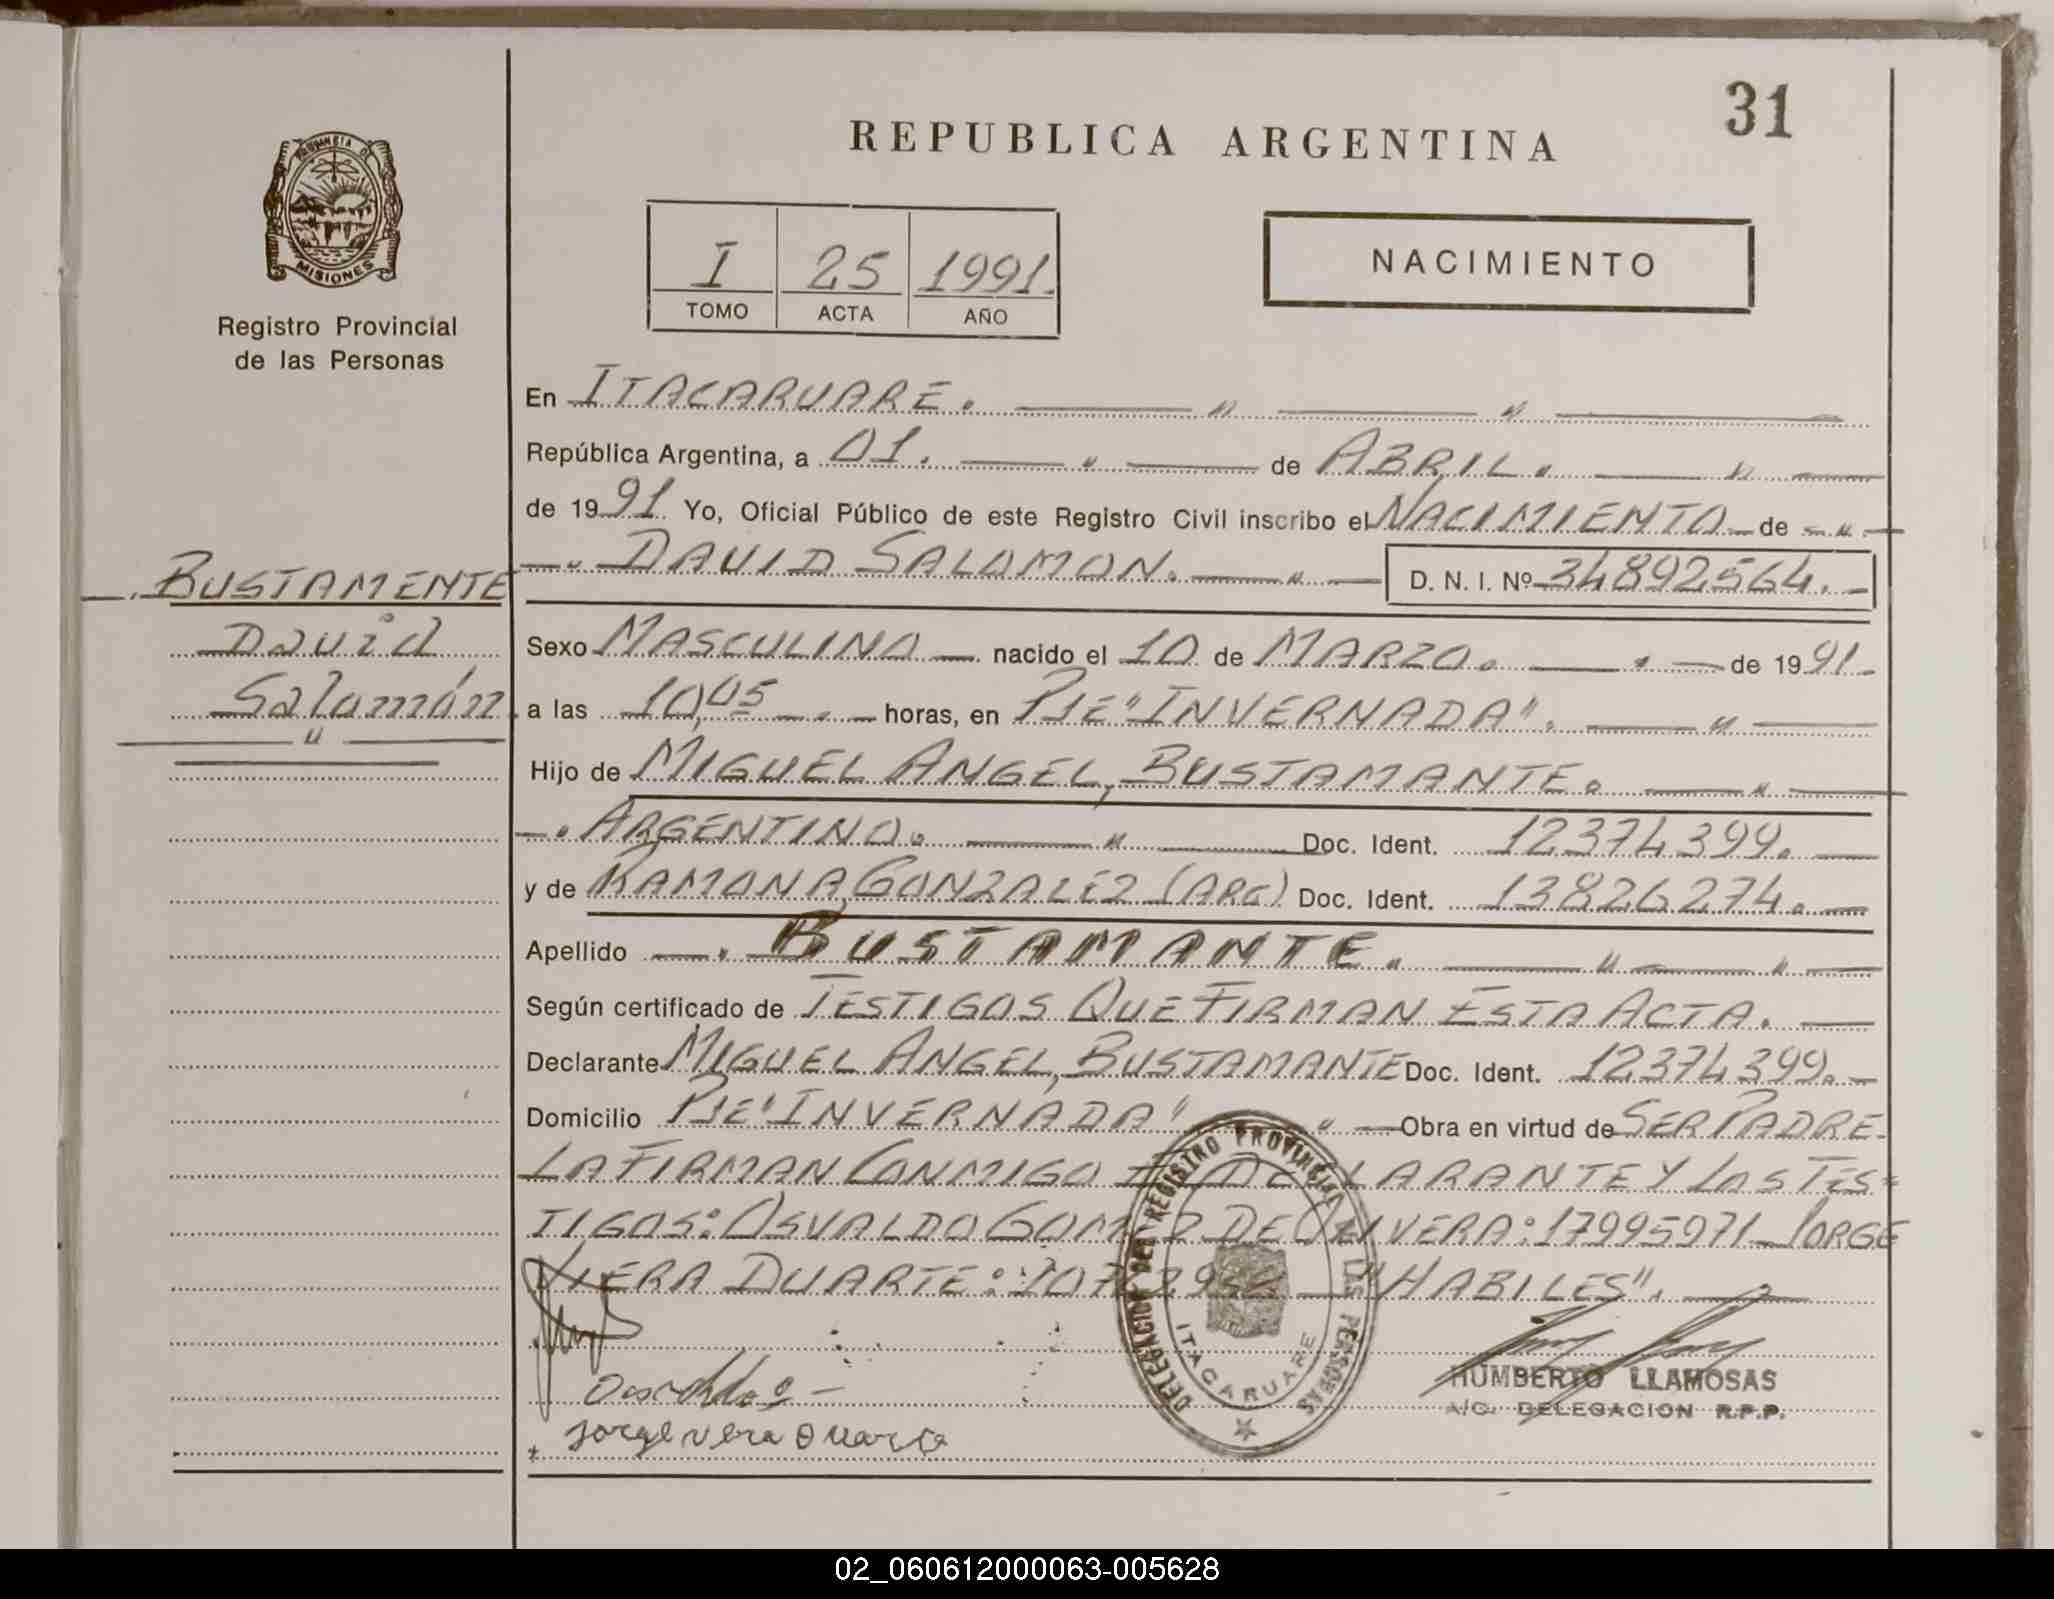 31
REPUBLICA ARGENTINA
PROVINCIA DE
MISIONES
Registro Provincial
de las Personas
I 25 1991.
TOMO ACTA AÑO
NACIMIENTO
En ITACARUARE.
República Argentina, a 01. de ABRIL.
de 1991. Yo, Oficial Público de este Registro Civil inscribo el NACIMIENTO de
DAVID SALOMON. D. N. I. Nº 34892564.
BUSTAMENTE
David
Salomón
Sexo MASCULINO nacido el 10 de MARZO. de 1991.
a las 10,05 horas, en PJE "INVERNADA".
Hijo de MIGUEL ANGEL, BUSTAMANTE.
ARGENTINO. Doc. Ident. 12374399.
y de RAMONA, GONZALEZ (ARG) Doc. Ident. 13826274.
Apellido BUSTAMANTE.
Según certificado de TESTIGOS QUE FIRMAN ESTA ACTA.
Declarante MIGUEL ANGEL, BUSTAMANTE Doc. Ident. 12374399.
Domicilio PJE "INVERNADA" Obra en virtud de SER PADRE-
LA FIRMAN CONMIGO DECLARANTE Y LOS TES-
TIGOS: OSVALDO GOMEZ DE OLIVERA: 17995971_ JORGE
VIERA DUARTE: "HABILES".
DELEGACION DEL REGISTRO PROVINCIAL DE LAS PERSONAS
ITACARUARE
HUMBERTO LLAMOSAS
A/C. DELEGACION R.P.P.
Jorge vera Duarte
02_060612000063-005628